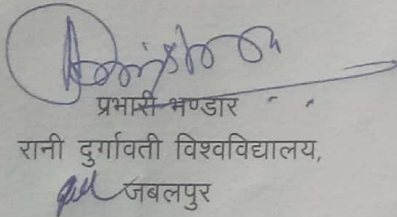 प्रभारी भण्डार
रानी दुर्गावती विश्वविद्यालय,
जबलपुर